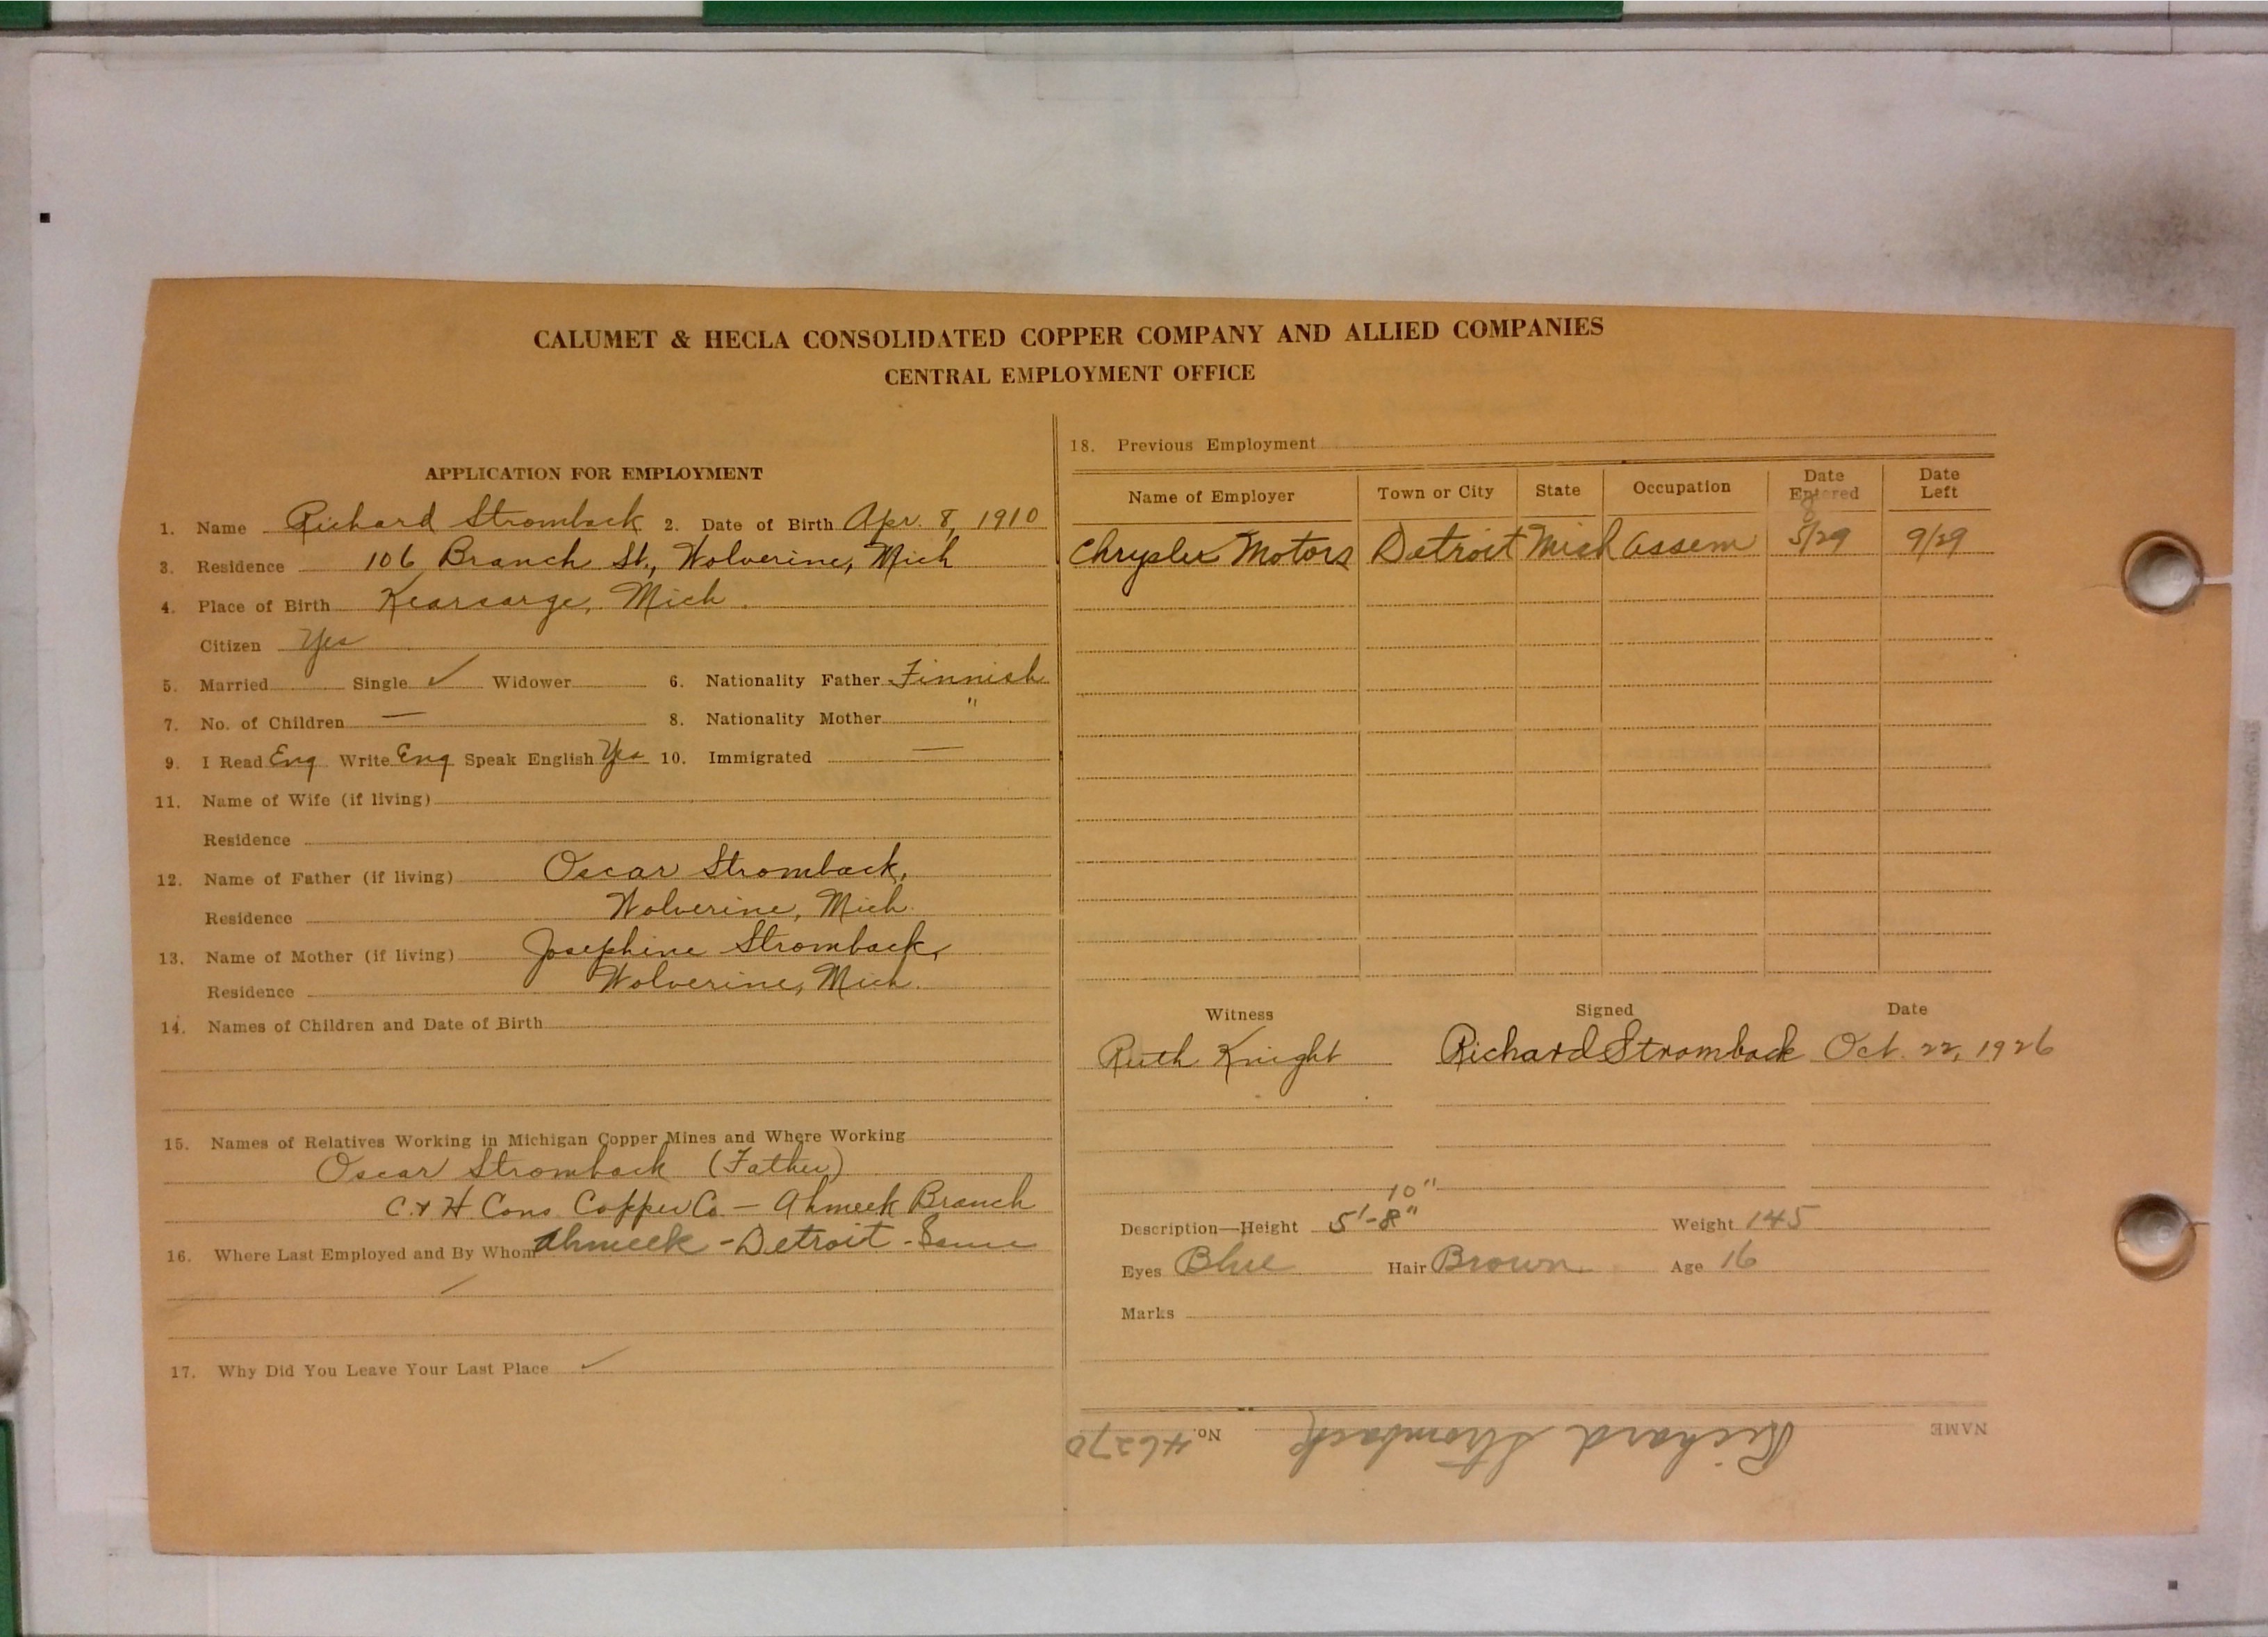 CALUMET & HECLA CONSOLIDATED COPPER COMPANY AND ALLIED COMPANIES
CENTRAL EMPLOYMENT OFFICE
APPLICATION FOR EMPLOYMENT
1. Name Richard Stromback 2. Date of Birth Apr. 8, 1910
3. Residence 106 Branch St., Wolverine, Mich
4. Place of Birth Kearsarge, Mich.
Citizen Yes
5. Married Single ✓ Widower 6. Nationality Father Finnish
7. No. of Children — 8. Nationality Mother "
9. I Read Eng Write Eng Speak English Yes 10. Immigrated —
11. Name of Wife (if living)
Residence
12. Name of Father (if living) Oscar Stromback,
Residence Wolverine, Mich.
13. Name of Mother (if living) Josephine Stromback,
Residence Wolverine, Mich.
14. Names of Children and Date of Birth
15. Names of Relatives Working in Michigan Copper Mines and Where Working
Oscar Stromback (Father)
C. & H. Cons. Copper Co. — Ahmeek Branch
16. Where Last Employed and By Whom Ahmeek - Detroit - Same
17. Why Did You Leave Your Last Place ✓
18. Previous Employment
Name of Employer Town or City State Occupation Date Entered Date Left
Chrysler Motors Detroit Mich Assem 5/29 9/29
Witness Signed Date
Ruth Knight Richard Stromback Oct. 22, 1926
10"
Description—Height 5'-8" Weight 145
Eyes Blue Hair Brown Age 16
Marks
NAME Richard Stromback No. 46270